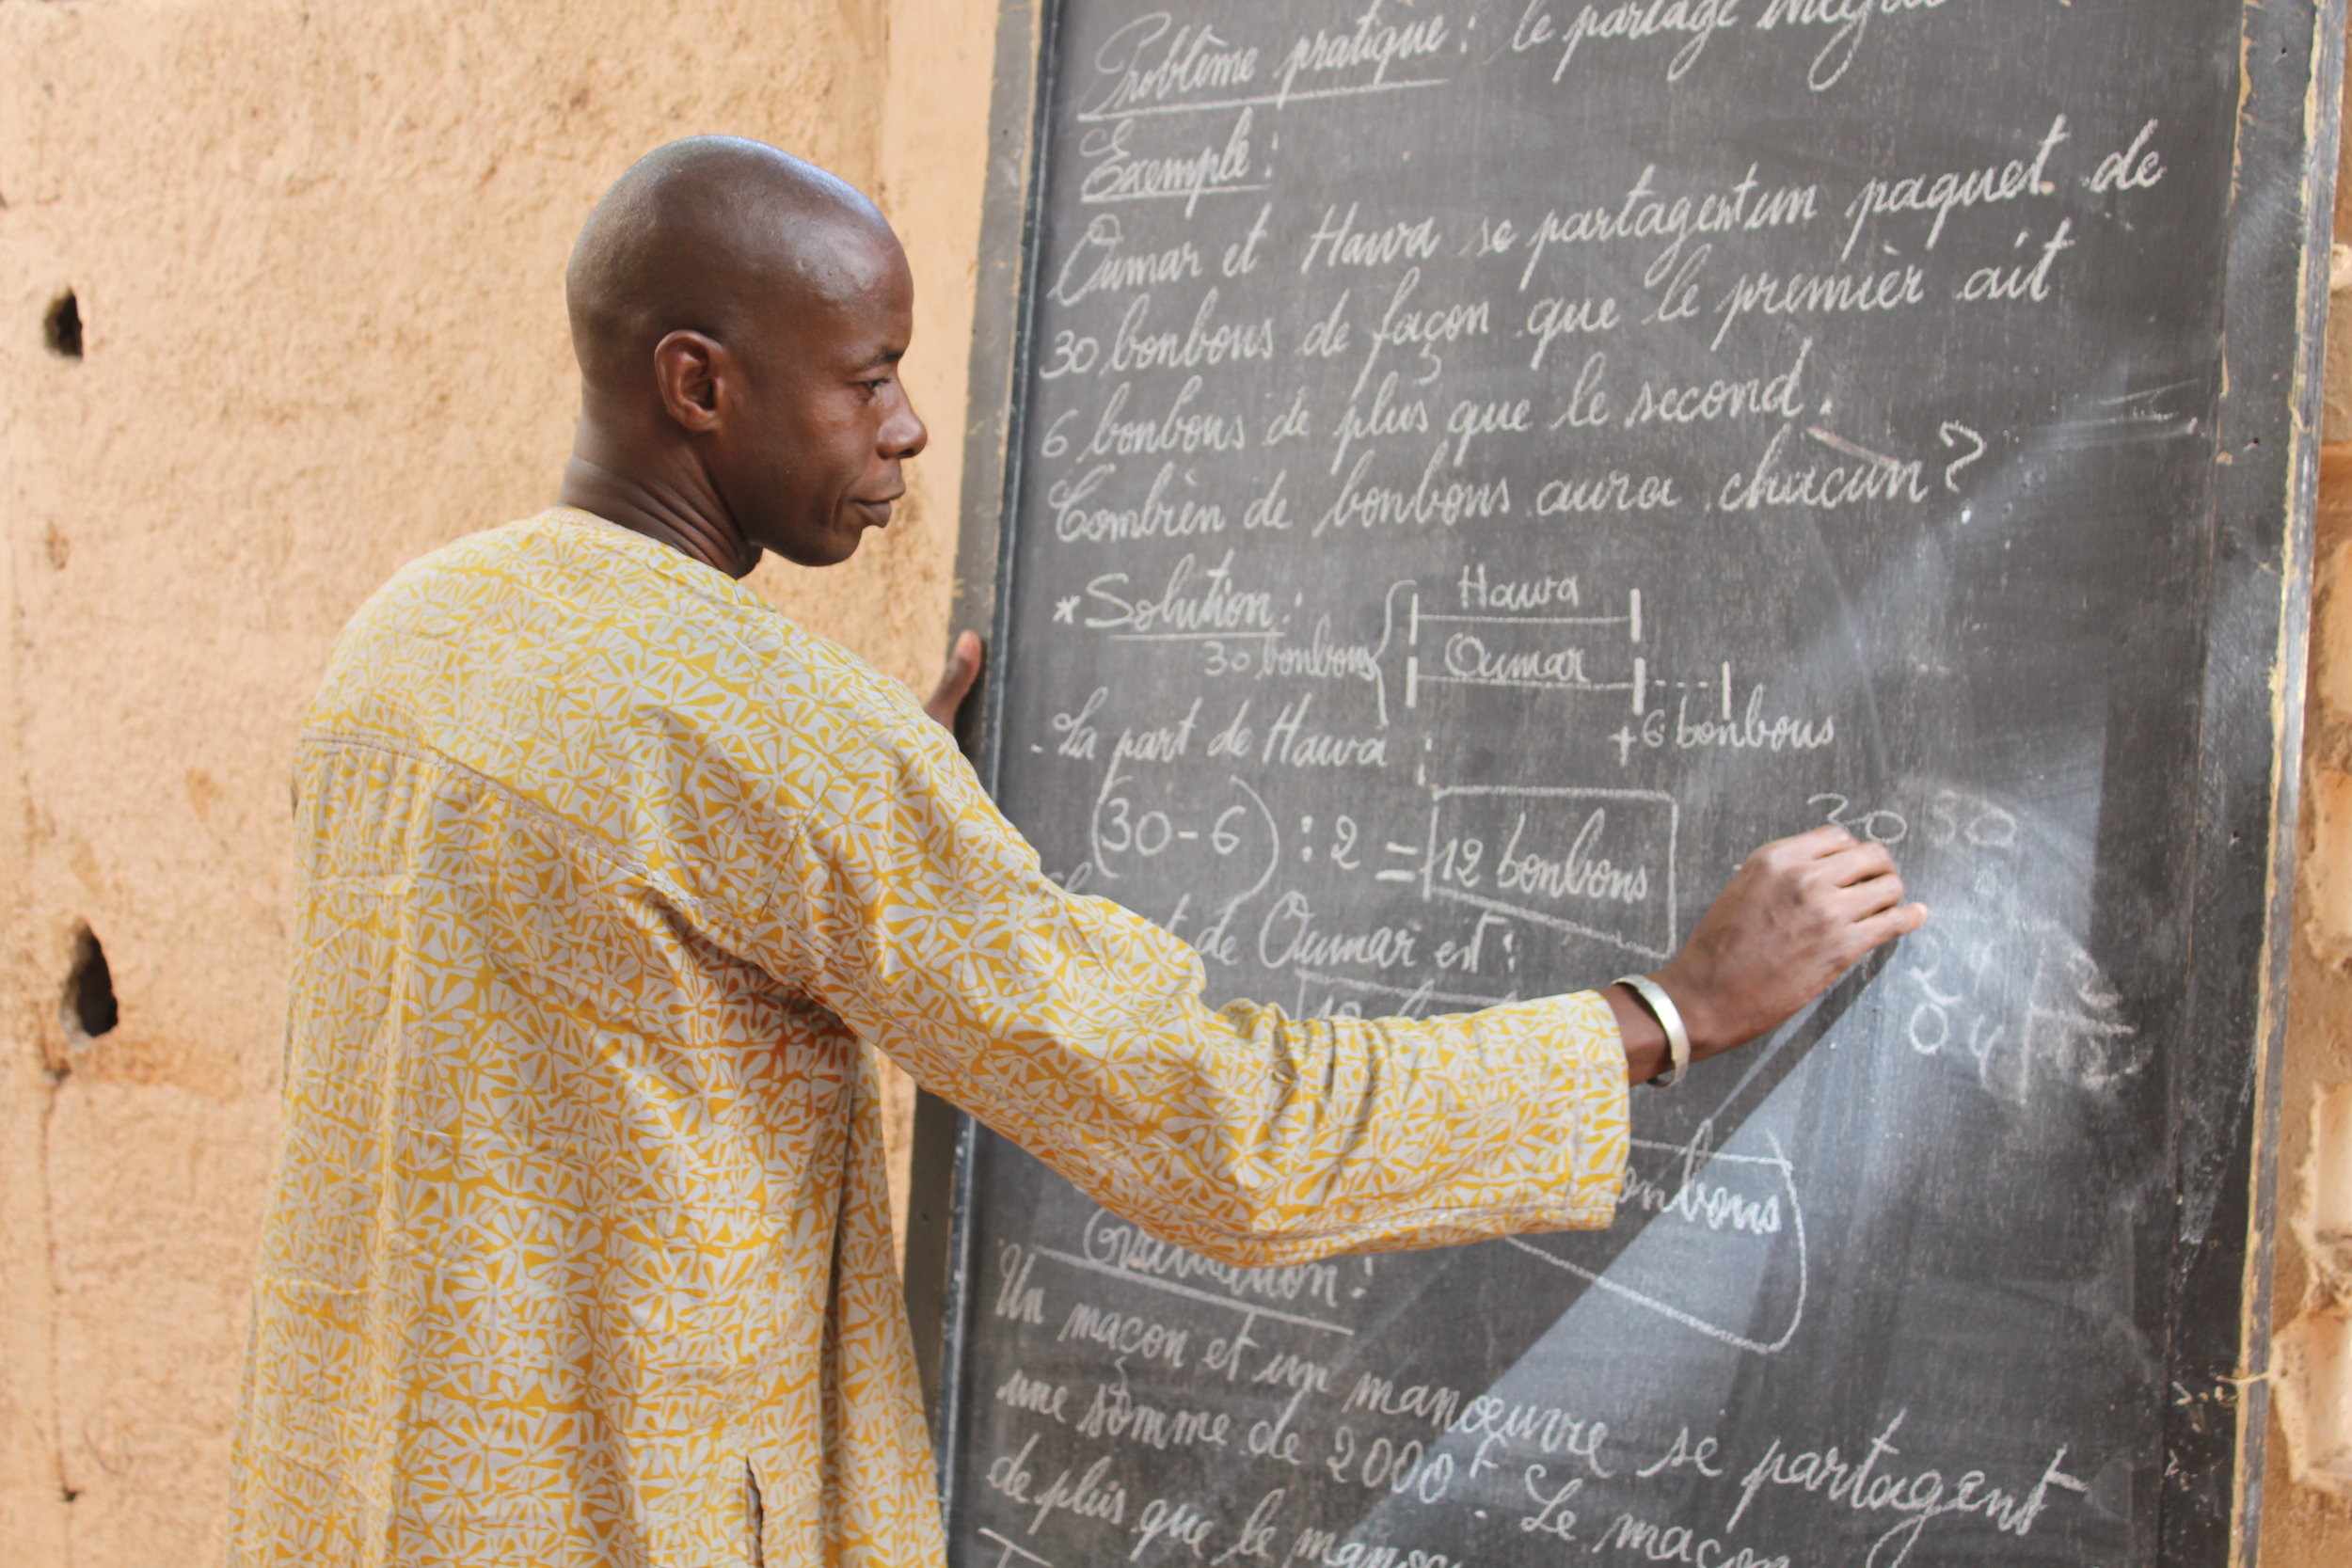 Problème pratique : le partage inégal
Exemple :
Oumar et Hawa se partagent un paquet de
30 bonbons de façon que le premier ait
6 bonbons de plus que le second.
Combien de bonbons aura chacun ?
* Solution :
Hawa
30 bonbons
Oumar
+6 bonbons
. La part de Hawa :
(30-6) : 2 = 12 bonbons
30 30
de Oumar est :
24 2
04 12
Evaluation :
Un maçon et un manœuvre se partagent
une somme de 2000F. Le maçon
de plus que le